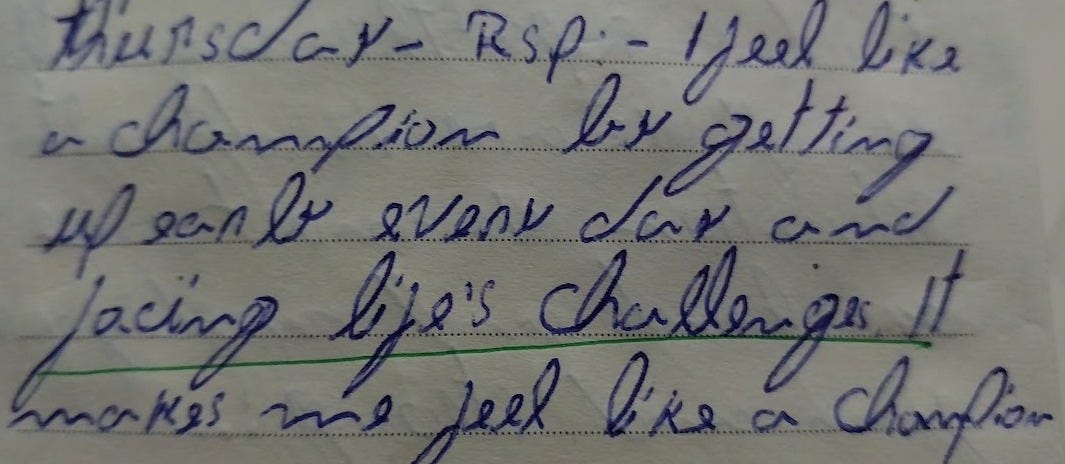 thursday - Rsp: - I feel like
a champion by getting
up early every day and
facing life's challenges. It
makes me feel like a champion